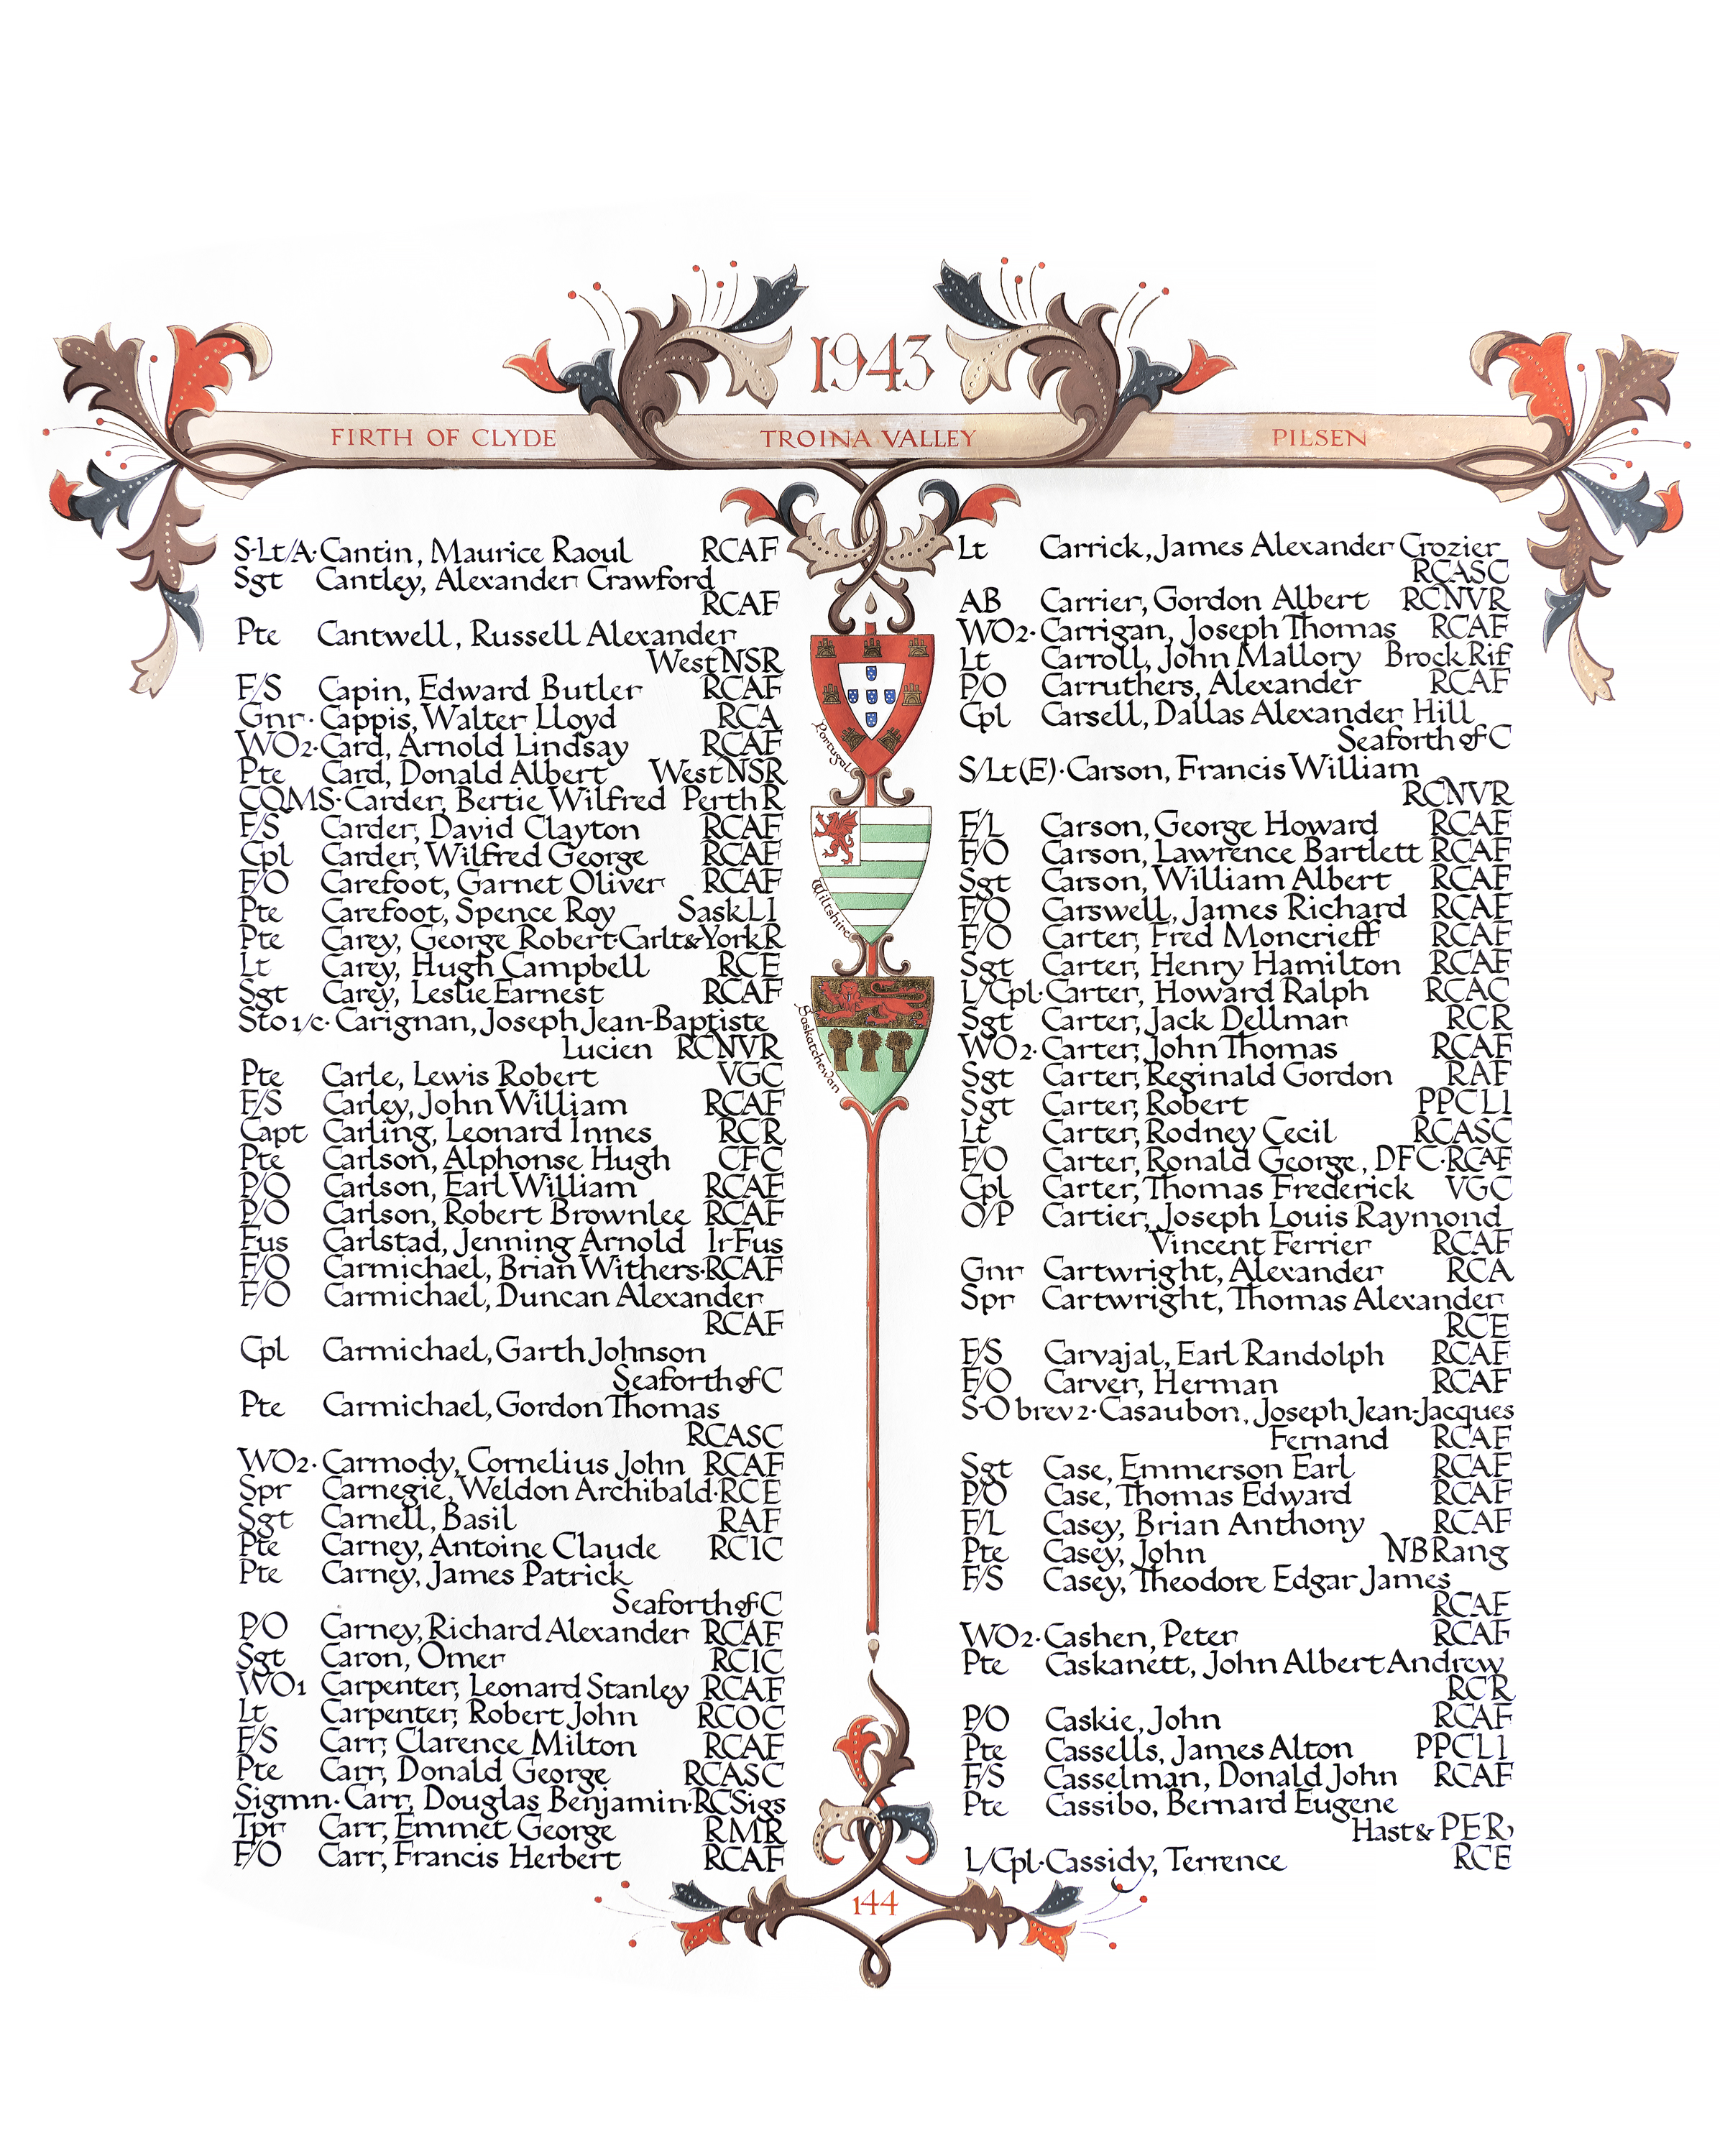 1943
FIRTH OF CLYDE TROINA VALLEY PILSEN
S-Lt/A·Cantin, Maurice Raoul RCAF
Sgt Cantley, Alexander Crawford
RCAF
Pte Cantwell, Russell Alexander
West NSR
F/S Capin, Edward Butler RCAF
Gnr·Cappis, Walter Lloyd RCA
WO2·Card, Arnold Lindsay RCAF
Pte Card, Donald Albert West NSR
CQMS·Carder, Bertie Wilfred Perth R
F/S Carder, David Clayton RCAF
Cpl Carder, Wilfred George RCAF
F/O Carefoot, Garnet Oliver RCAF
Pte Carefoot, Spence Roy Sask LI
Pte Carey, George Robert·Carlt & York R
Lt Carey, Hugh Campbell RCE
Sgt Carey, Leslie Earnest RCAF
Sto 1/c·Carignan, Joseph Jean-Baptiste
Lucien RCNVR
Pte Carle, Lewis Robert VGC
F/S Carley, John William RCAF
Capt Carling, Leonard Innes RCR
Pte Carlson, Alphonse Hugh CFC
P/O Carlson, Earl William RCAF
P/O Carlson, Robert Brownlee RCAF
Fus Carlstad, Jenning Arnold Ir Fus
F/O Carmichael, Brian Withers·RCAF
F/O Carmichael, Duncan Alexander
RCAF
Cpl Carmichael, Garth Johnson
Seaforth of C
Pte Carmichael, Gordon Thomas
RCASC
WO2·Carmody, Cornelius John RCAF
Spr Carnegie, Weldon Archibald·RCE
Sgt Carnell, Basil RAF
Pte Carney, Antoine Claude RCIC
Pte Carney, James Patrick
Seaforth of C
P/O Carney, Richard Alexander RCAF
Sgt Caron, Omer RCIC
WO1 Carpenter, Leonard Stanley RCAF
Lt Carpenter, Robert John RCOC
F/S Carr, Clarence Milton RCAF
Pte Carr, Donald George RCASC
Sigmn·Carr, Douglas Benjamin·RCSigs
Tpr Carr, Emmet George RMR
F/O Carr, Francis Herbert RCAF
Portugal
Wiltshire
Saskatchewan
Lt Carrick, James Alexander Crozier
RCASC
AB Carrier, Gordon Albert RCNVR
WO2·Carrigan, Joseph Thomas RCAF
Lt Carroll, John Mallory Brock Rif
P/O Carruthers, Alexander RCAF
Cpl Carsell, Dallas Alexander Hill
Seaforth of C
S/Lt(E)·Carson, Francis William
RCNVR
F/L Carson, George Howard RCAF
F/O Carson, Lawrence Bartlett RCAF
Sgt Carson, William Albert RCAF
F/O Carswell, James Richard RCAF
F/O Carter, Fred Moncrieff RCAF
Sgt Carter, Henry Hamilton RCAF
L/Cpl·Carter, Howard Ralph RCAC
Sgt Carter, Jack Dellmar RCR
WO2·Carter, John Thomas RCAF
Sgt Carter, Reginald Gordon RAF
Sgt Carter, Robert PPCLI
Lt Carter, Rodney Cecil RCASC
F/O Carter, Ronald George, DFC·RCAF
Cpl Carter, Thomas Frederick VGC
O/P Cartier, Joseph Louis Raymond
Vincent Ferrier RCAF
Gnr Cartwright, Alexander RCA
Spr Cartwright, Thomas Alexander
RCE
F/S Carvajal, Earl Randolph RCAF
F/O Carver, Herman RCAF
S-O brev 2·Casaubon, Joseph Jean-Jacques
Fernand RCAF
Sgt Case, Emmerson Earl RCAF
P/O Case, Thomas Edward RCAF
F/L Casey, Brian Anthony RCAF
Pte Casey, John NB Rang
F/S Casey, Theodore Edgar James
RCAF
WO2·Cashen, Peter RCAF
Pte Caskanett, John Albert Andrew
RCR
P/O Caskie, John RCAF
Pte Cassells, James Alton PPCLI
F/S Casselman, Donald John RCAF
Pte Cassibo, Bernard Eugene
Hast & PER
L/Cpl·Cassidy, Terrence RCE
144